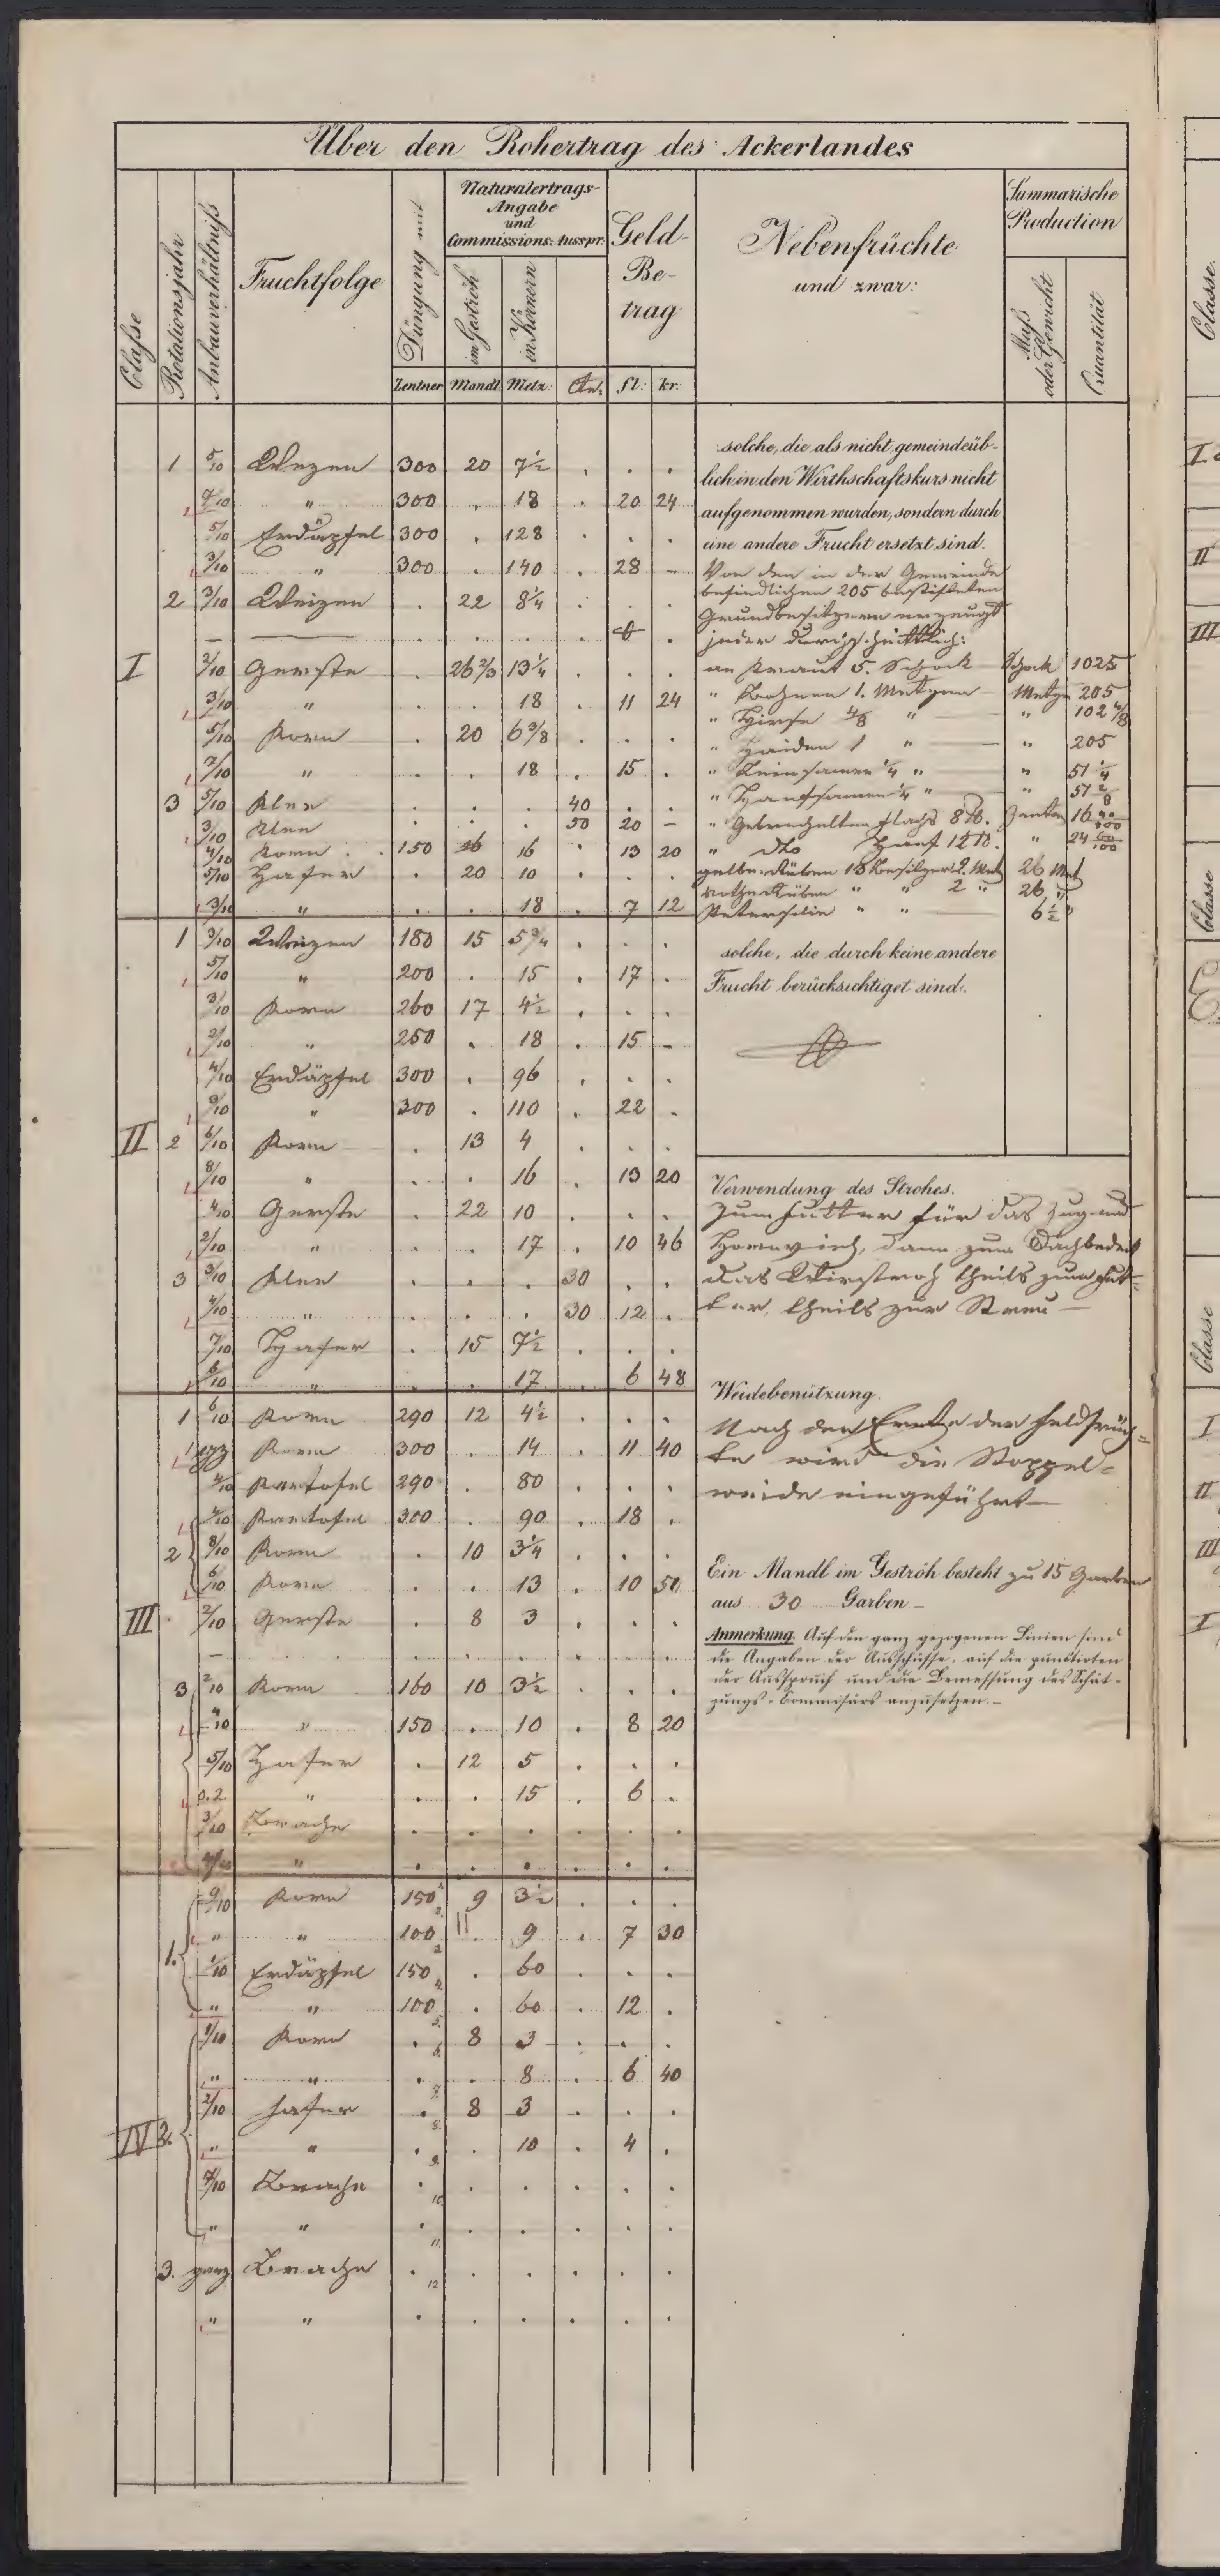 Über den Rohertrag des Ackerlandes
Classe
Rotationsjahr
Anbauverhältniss
Fruchtfolge
Düngung mit
Naturalertrags-
Angabe
und
Commissions-Ausspr.
im Geströh
in Körnern
Geld-
Be-
trag
Nebenfrüchte
und zwar:
Summarische
Production
Mass
oder Gewicht
Quantität
Zentner Mandl Metz: Ctr. fl: kr:
1 5/10 Weizen 300 20 7½ . . .
" 300 . 18 . 20 24
5/10 Erdäpfel 300 . 128 . . .
3/10 " 300 . 140 . 28 –
2 3/10 Weizen . 22 8¼ . . .
I 2/10 Gerste . 26 2/3 13¼ . . .
3/10 " . . 18 . 11 24
5/10 Korn . 20 6 3/8 . . .
7/10 " . . 18 . 15 .
3 5/10 Klee . . . 40 . .
3/10 Klee . . . 50 20 –
4/10 Korn . 150 16 16 . 13 20
5/10 Hafer . 20 10 . . .
3/10 " . . 18 . 7 12
1 3/10 Weizen 180 15 5¾ . . .
5/10 " 200 . 15 . 17 .
3/10 Korn 260 17 4½ . . .
2/10 " 250 . 18 . 15 –
4/10 Erdäpfel 300 . 96 . . .
3/10 " 300 . 110 . 22 .
II 2 6/10 Korn . 13 4 . . .
8/10 " . . 16 . 13 20
4/10 Gerste . 22 10 . . .
2/10 " . . 17 . 10 46
3 3/10 Klee . . . 30 . .
4/10 " . . . 30 12 .
7/10 Hafer . 15 7½ . . .
6/10 " . . 17 . 6 48
1 6/10 Korn 290 12 4½ . . .
Korn 300 . 14 . 11 40
4/10 Kartofel 290 . 80 . . .
4/10 Kartofel 300 . 90 . 18 .
2 8/10 Korn . 10 3¼ . . .
6/10 Korn . . 13 . 10 50
III 2/10 Gerste . 8 3 . . .
3 2/10 Korn 160 10 3½ . . .
4/10 " 150 . 10 . 8 20
5/10 Hafer . 12 5 . . .
0.2 " . . 15 . 6 .
3/10 Brache . . . . . .
4/10 " . . . . . .
9/10 Korn 150 9 3½ . . .
1. " " 100 . 9 . 7 30
1/10 Erdäpfel 150 . 60 . . .
" " 100 . 60 . 12 .
1/10 Korn . 8 3 . . .
" " . . 8 . 6 40
2/10 Hafer . 8 3 . . .
IV 2. " " . . 10 . 4 .
7/10 Brache . . . . . .
" " . . . . . .
3. ganz Brache . . . . . .
" " . . . . . .
solche, die als nicht gemeindeüb-
lich in den Wirthschaftskurs nicht
aufgenommen wurden, sondern durch
eine andere Frucht ersetzt sind.
Von den in der Gemeinde
befindlichen 205 bestifteten
Grundbesitzern erzeugt
jeder durchschnittlich:
an Kraut 5. Schock Schock 1025
" Bohnen 1. Metzen Metzen 205
" Hirse 4/8 " " 102 4/8
" Haiden 1 " " 205
" Leinsamen ¼ " " 51 ¼
" Hanfsamen ¼ " " 51 2/8
" Gebrechelten Flachs 8 ℔. Zenten 16 40/100
" dto Hanf 12 ℔. " 24 60/100
gelbe Rüben 13 Besitzer 2. Metz 26 Met
rothe Rüben " " 2 " 26 "
Petersilie " " 6½ "
solche, die durch keine andere
Frucht berücksichtiget sind.
Verwendung des Strohes.
Zum Futter für das Zug und
Hornvieh, dann zum Dachbedek
das Wirstroh theils zum Fut-
ter, theils zur Streu
Weidebenützung.
Nach der Ernte der Feldfrüch-
te wird die Stoppel-
weide eingeführt
Ein Mandl im Geströh besteht zu 15 Garben
aus 30 Garben
Anmerkung Auf den ganz gezogenen Linien sind
die Angaben der Ausschüsse, auf die punktirten
der Ausspruch und die Bemessung des Schät-
zungs-Commisärs anzusetzen.
Classe.
I
II
III
Classe
Classe
I
II
III
I